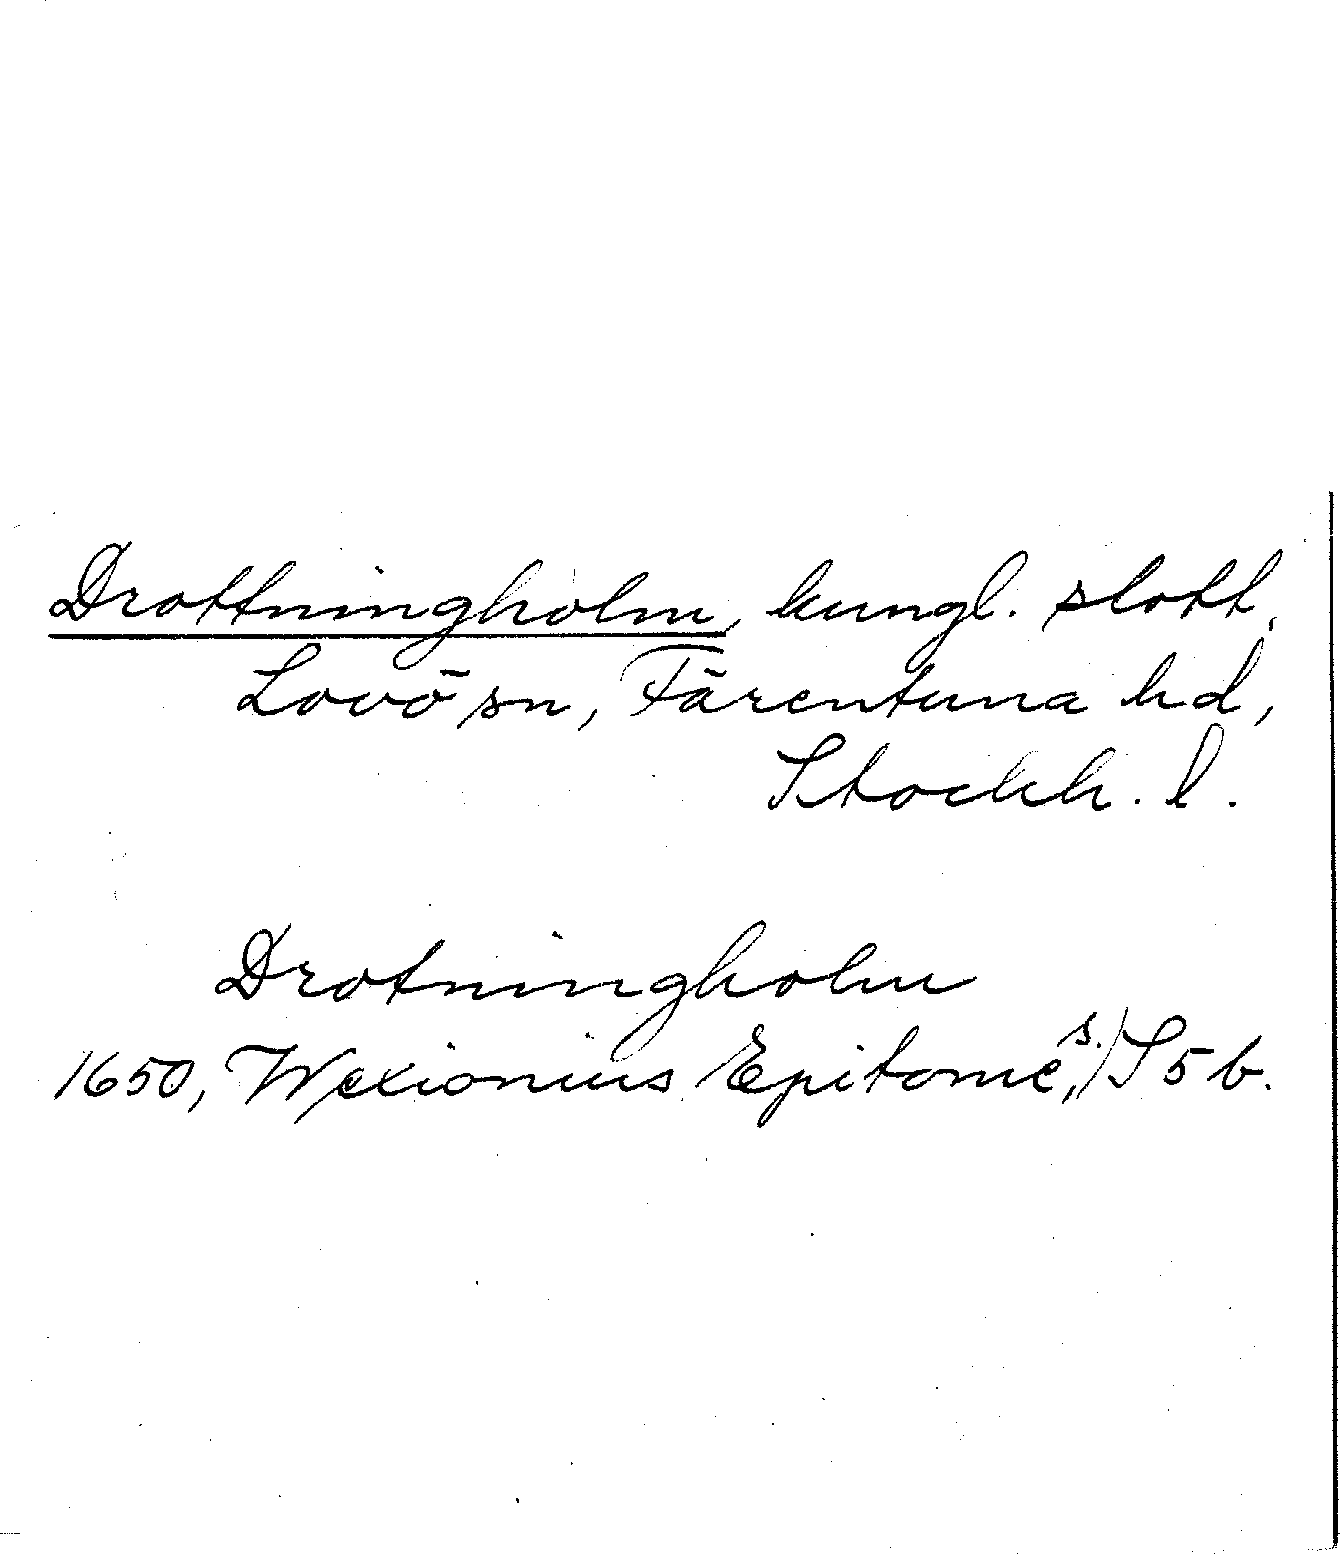 Drottningholm, kungl. slott,
Lovö sn, Färentuna hd,
Stockh. l.
Drotningholm
1650, Wexionius Epitome, s. S 5 b.